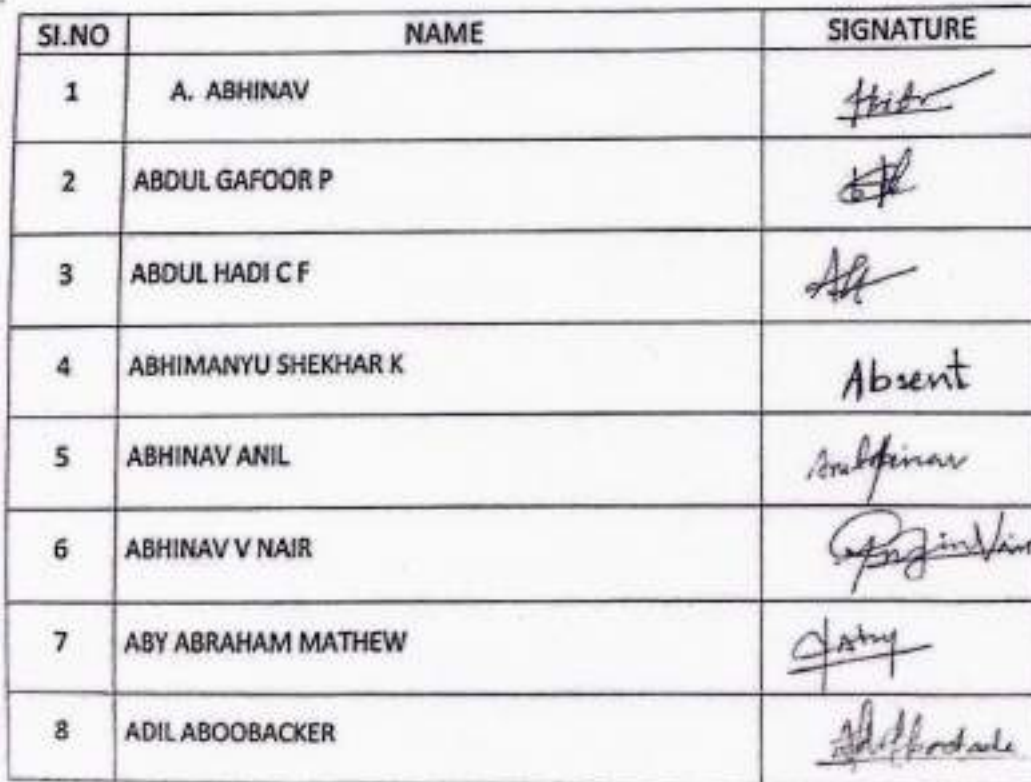 SI.NO NAME SIGNATURE
1 A. ABHINAV
2 ABDUL GAFOOR P
3 ABDUL HADI C F
4 ABHIMANYU SHEKHAR K Absent
5 ABHINAV ANIL
6 ABHINAV V NAIR
7 ABY ABRAHAM MATHEW
8 ADIL ABOOBACKER